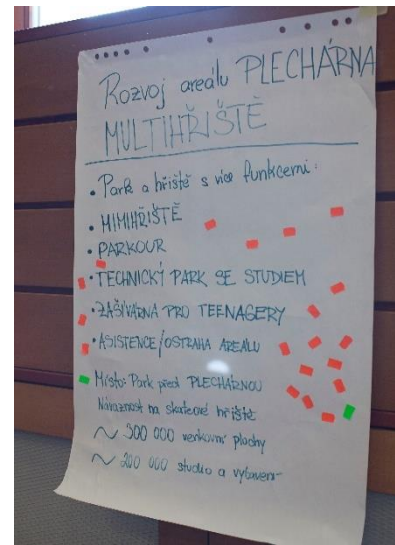 Rozvoj areálu PLECHÁRNA
MULTIHŘIŠTĚ
• Park a hřiště s více funkcemi:
• MIMIHŘIŠTĚ
• PARKOUR
• TECHNICKÝ PARK SE STUDIEM
• ZAŠÍVÁRNA PRO TEENAGERY
• ASISTENCE/OSTRAHA AREÁLU
Místo: Park před PLECHÁRNOU
Návaznost na skateové hřiště
~ 300 000 venkovní plochy
~ 200 000 studio a vybavení